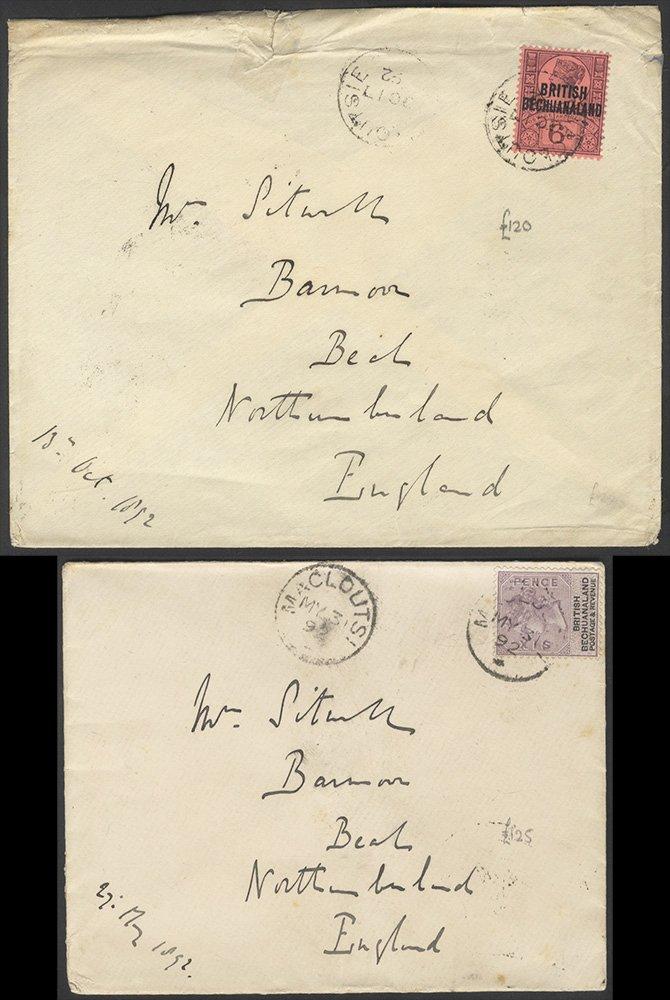 92
OC 17
BRITISH
BECHUANALAND
6
Mr. Sitwell
£120
Barmoor
Beal
Northumberland
England
13th Oct. 1892
MACLOUTSI
MY 31
92
PENCE
BRITISH
BECHUANALAND
POSTAGE & REVENUE
M
MY 31
92
Mr. Sitwell
Barmoor
Beal
£125
Northumberland
England
27. May 1892.